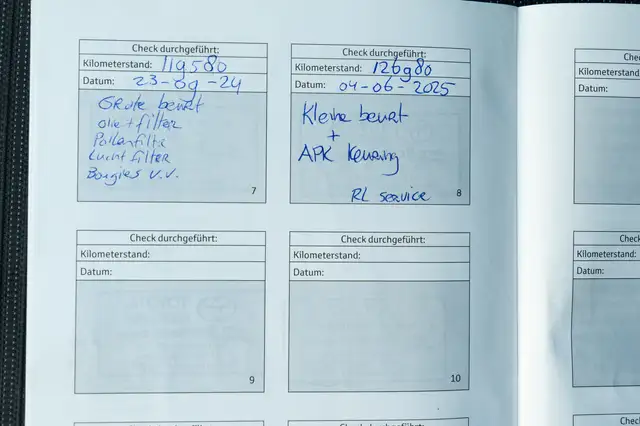 Check durchgeführt:
Kilometerstand: 119580
Datum: 23-09-24
Grote beurt
olie + filter
Pollenfilter
Lucht filter
Bougies v.v.
7
Check durchgeführt:
Kilometerstand: 126980
Datum: 04-06-2025
Kleine beurt
+
APK Keuring
RL service
8
Check durchgeführt:
Kilometerstand:
Datum:
9
Check durchgeführt:
Kilometerstand:
Datum:
10
Kilometerstand
Datum:
Check
Kilometerstand
Datum: